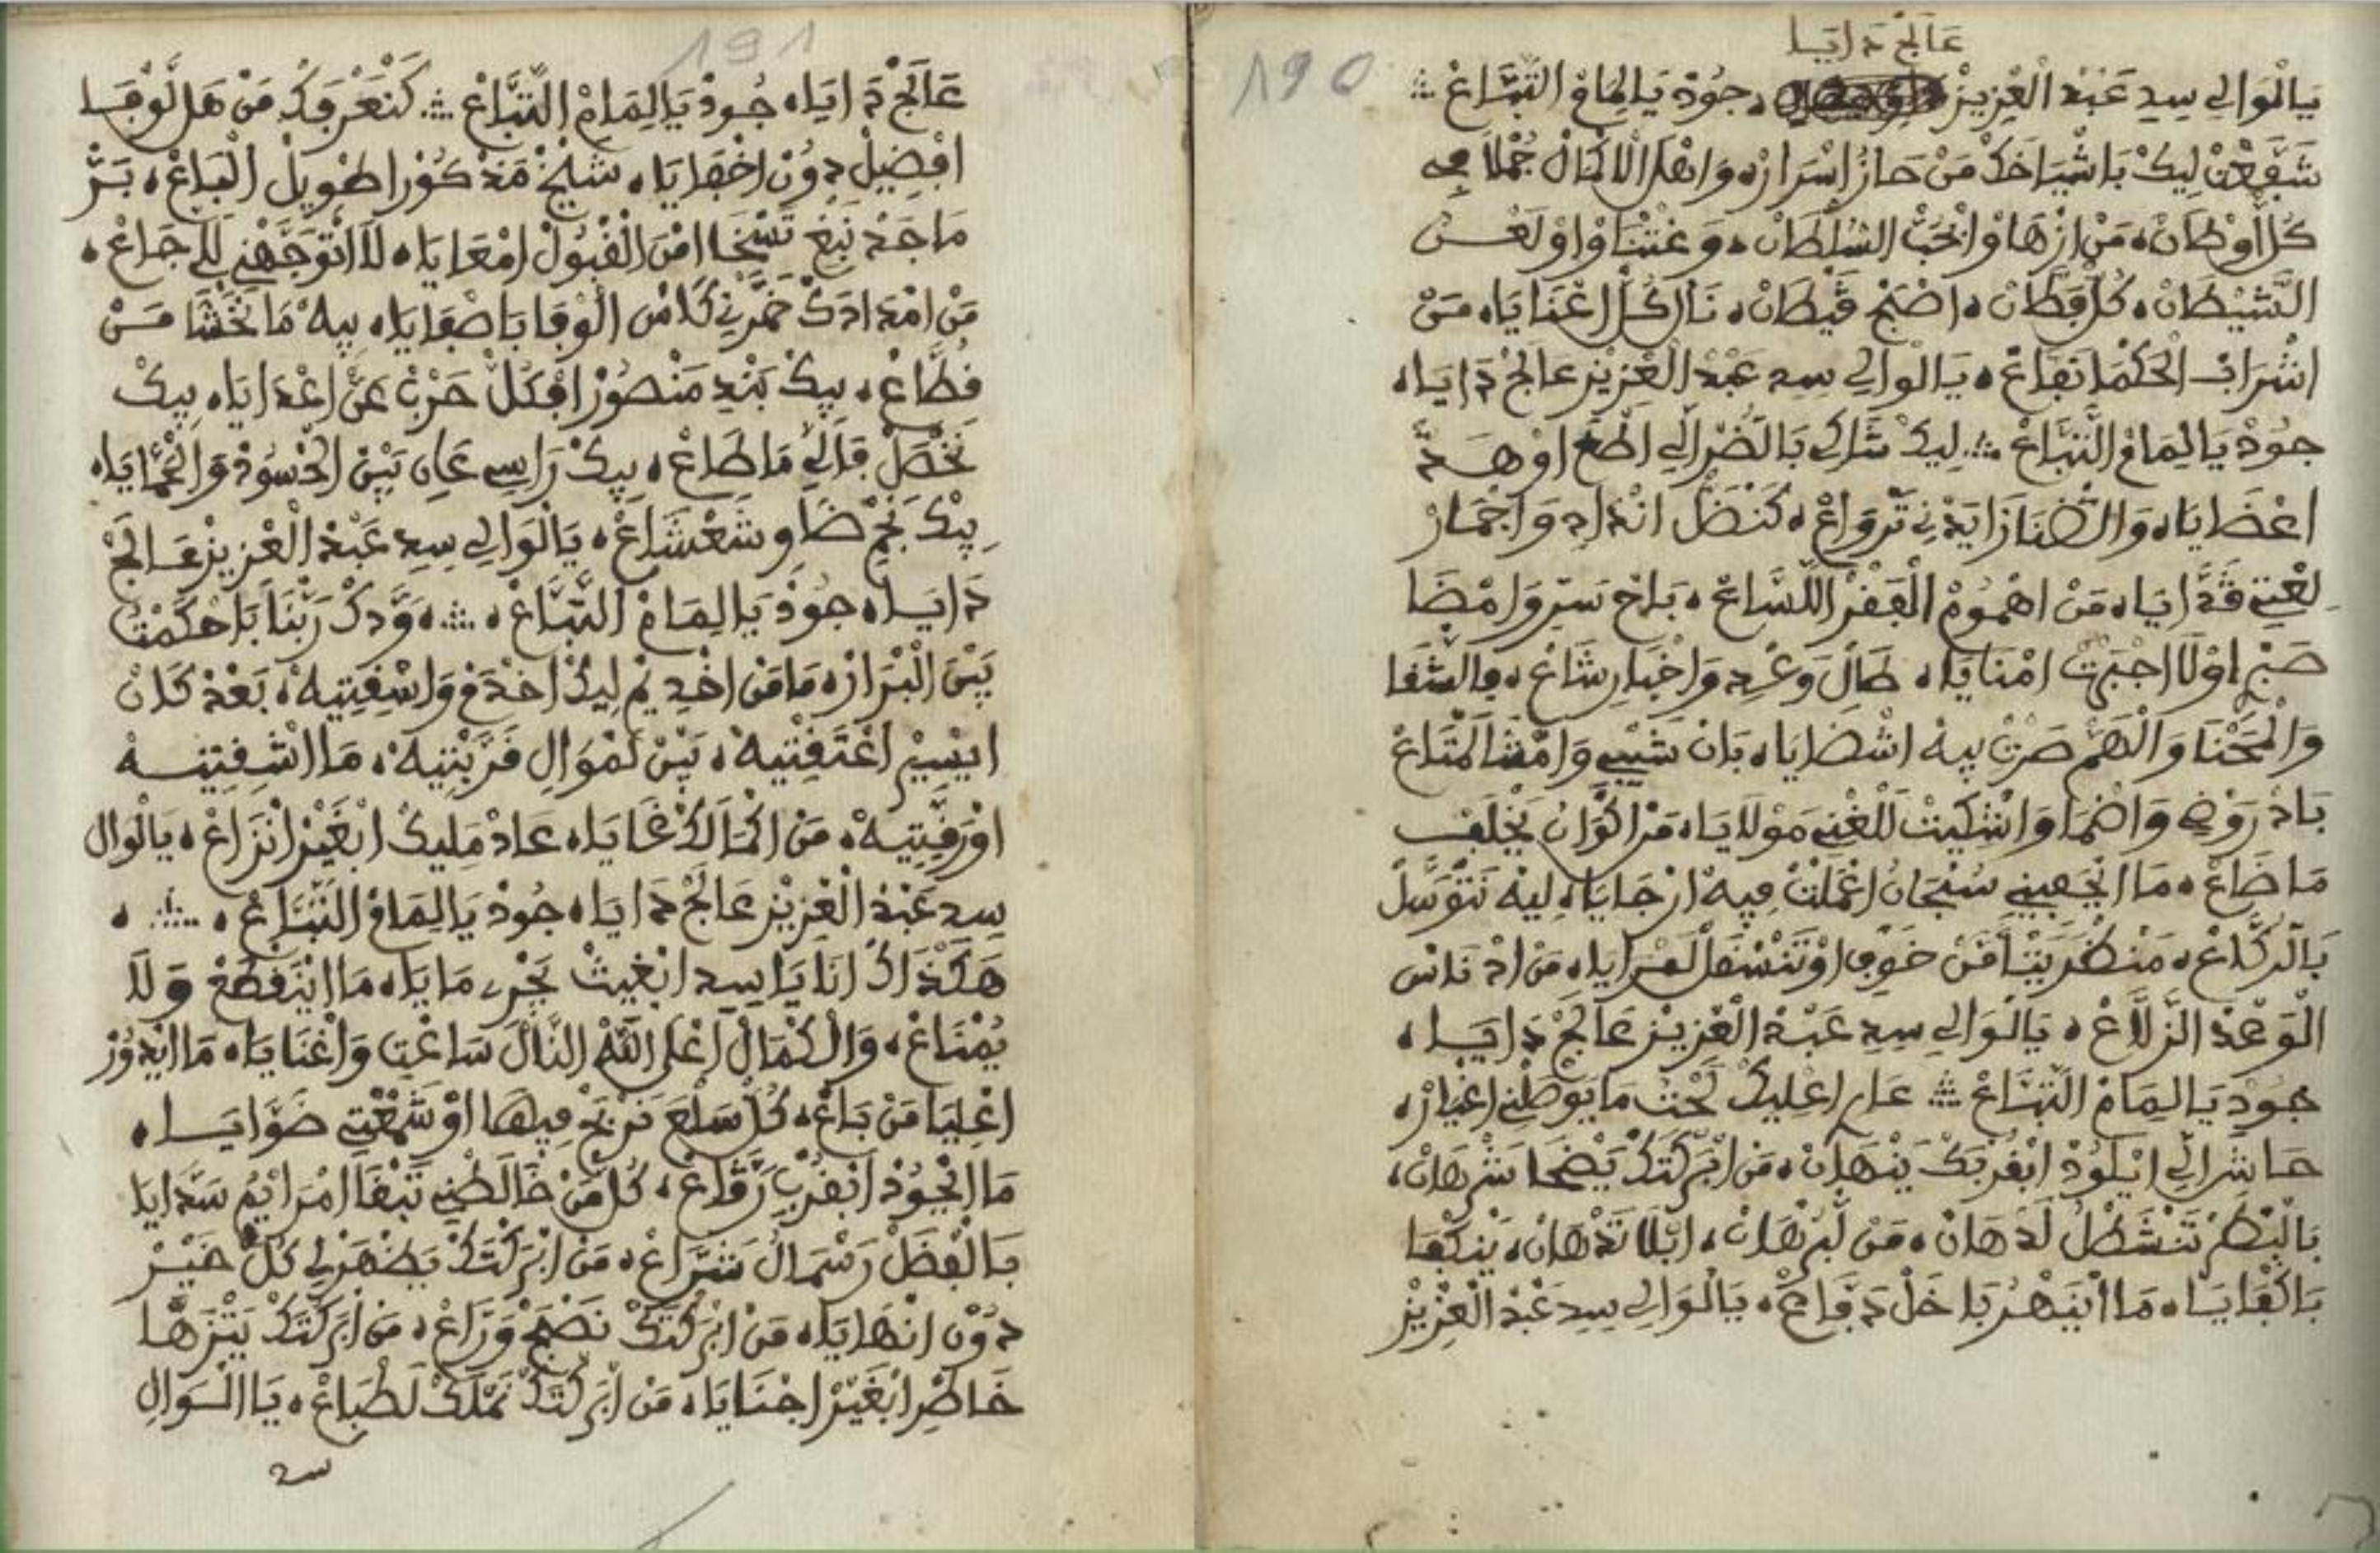 عَالَجْ دَايَا
190
يَالْوَالِي سِيدِ عَبْدْ الْعْزِيزْ ، جُودْ يَالِمَامْ التَّبَّاعْ
شَفَّعْتْ لِيكْ بَاشْيَاخَكْ مَنْ حَازْ اسْرَارْ، وَاهْلْ الكْمَالْ جُمْلَا فِي
كُلْ أَوْطَانْ، مَنْ ازْهَاوْا بْحُبّْ السُّلْطَانْ، وَعْتْنَاوْا وْلَعْسْ
الشِّيطَانْ، كُلْ فْطَانْ، اصْبَحْ قَيْطَانْ، نَارْ كُلْ اعْنَايَا، مَنْ
اشْرَابْ الْحَكْمَا نَفَّاعْ، يَالْوَالِي سِيدِ عَبْدْ الْعْزِيزْ عَالَجْ دَايَا،
جُودْ يَالِمَامْ التَّبَّاعْ لِيكْ شَاكِي بَالضُّرْ الِّي اطْعَ اوْهَدّْ
اعْضَايَا، وَالضْنَا زَايَدْنِي تَرْوَاعْ، كَنْضَلْ انْدَادِي وَاجْمَارْ
لِعْتِي قَدَّايَا، مَنْ اهْمُومْ الْفَقْرْ اللَّسَّاعْ، بَاحْ سَرِّي وَامْضَا
صَبْرِي اوْلَا اجْبَرْتْ امْنَايَا، طَالْ وَعْدِي وَاخْبَارِي شَاعْ، بِالشْقَا
وَالْمَحْنَا وَالْهَمّْ صَرْتْ بِيهْ اشْضَايَا، بَانْ شَيْبِي وَامْشَا لَمْتَاعْ
بَادْ رَوْضِي وَاضْمَا وَاشْكِيتْ لَلْغْنِي مَوْلَايَا، مَنْ اكْوَانُ يَخْلَفْ
مَا ضَاعْ، مَا ايْخَيَّبْنِي سُبْحَانُ اعْمَلْتْ فِيهْ ارْجَايَا، لِيهْ نَتْوَسَّلْ
بَالرُّكَّاعْ، مَنْ كُرْبَتْنَا مَنْ خَوْفِي اوْ تَنْسْفَلْ لَمْرَايَا، مَنْ ادْنَاسْ
الْوَعْدْ الزَّلَّاعْ، يَالْوَالِي سِيدِ عَبْدْ الْعْزِيزْ عَالَجْ دَايَا،
جُودْ يَالِمَامْ التَّبَّاعْ عَارِي اعْلِيكْ لَحْتُ مَا يَوْطِنِي اغْيَارْ،
حَاشَا الِّي ايْلُودْ ابْقُرْبَكْ يَنْهَانْ، مَنْ ابْرَكْتَكْ يَضْحَا شَرْهَانْ،
بَالْبْطَرْ تَنْشَطْلْ لَدْهَانْ، مَنْ لَبْرْهَانْ، ابْلَا تَدْهَانْ، يَنْكْفَا
بَاكْفَايَا، مَا ايْنَهْرُ بَاخَلْ دَفَّاعْ، يَالْوَالِي سِيدِ عَبْدْ الْعْزِيزْ
191
عَالَجْ دَايَا، جُودْ يَالِمَامْ التَّبَّاعْ كَنَعْرْفَكْ مَنْ هَلْ لَوْفَا
افْضِيلْ دُونْ اخْفَايَا، شَيْخْ مَذْكُورْ اطْوِيلْ الْبَاعْ، بَرّْ
مَاجَدْ نَبْغِ تَسْخَا مْنْ الْقْبُولْ امْعَايَا، لَا اتْوَجَّهْنِي لَلْجَاعْ،
مَنْ امْدَادَكْ خَمَّرْنِي كَاسْ الْوْفَا بَاصْفَايَا، بِيهْ مَا نَخْشَا مَنْ
فُطَّاعْ، بِيكْ بَنْدِي مَنْصُورْ افْكُلّْ حَرْبْ عَنْ اعْدَايَا، بِيكْ
نَحْصَلْ فَالِّي مَا طَاعْ، بِيكْ رَاسِي عَالِي بَيْنْ الْحْسُودْ وَالْحْمَايَا،
بِيكْ نَجْمِي ضَاوِي شَعْشَاعْ، يَالْوَالِي سِيدِ عَبْدْ الْعْزِيزْ عَالَجْ
دَايَا، جُودْ يَالِمَامْ التَّبَّاعْ، وَدَّكْ رَبْنَا بَاحْكَمْتُ
بَيْنْ الْبْرَارْ، مَا مَنْ اخْدِيمْ لِيكْ اخْدَمْ وَاسْقِيتِيهْ، بَعْدْ كَانْ
ايْسِيرْ اعْتَقْتِيهْ، بَيْنْ لَمْوَالِي قَرَّبْتِيهْ، مَا اشْقِيتِيهْ
اوْرَقِّيتِيهْ، مَنْ الْمَالَكْ غَايَا، عَادْ مَلِيكْ ابْغَيْرْ انْزَاعْ، يَالْوَالِ
سِيدِ عَبْدْ الْعْزِيزْ عَالَجْ دَايَا، جُودْ يَالِمَامْ التَّبَّاعْ،
هَكْذَاكْ انَا يَا سِيدِ ابْغِيتْ يَجْرِي مَايَا، مَا ايْنَقْطَعْ وَلَا
يُمْنَاعْ، وَالكْمَالْ اعْلَى اللَّهْ النَّالْ سَاعْتِي وَاغْنَايَا، مَا ايْدُورْ
اعْلِيَا مَنْ بَاعْ، كُلْ سَلْعَ نَرْبَحْ فِيهَا اوْ شَمْعْتِي ضَوَّايَا،
مَا ايْجُودْ ابْقُرْبِ رَقَّاعْ، كُلْ مَنْ خَالَطْنِي تَبْقَا امْرَايْمُ سَدَّايَا
بَالْفْضَلْ رَسْمَالُ شَرَّاعْ، مَنْ ابْرَكْتَكْ يَضْهَرْلِي كُلّْ خَيْرْ
دُونْ انْهَايَا، مَنْ ابْرَكْتَكْ نَصْبَحْ وَرَّاعْ، مَنْ ابْرَكْتَكْ يَتْزَهَّا
خَاطْرِي ابْغَيْرْ اجْنَايَا، مَنْ ابْرَكْتَكْ نَمْلَكْ لَطْبَاعْ، يَا الْوَالِ
سيد